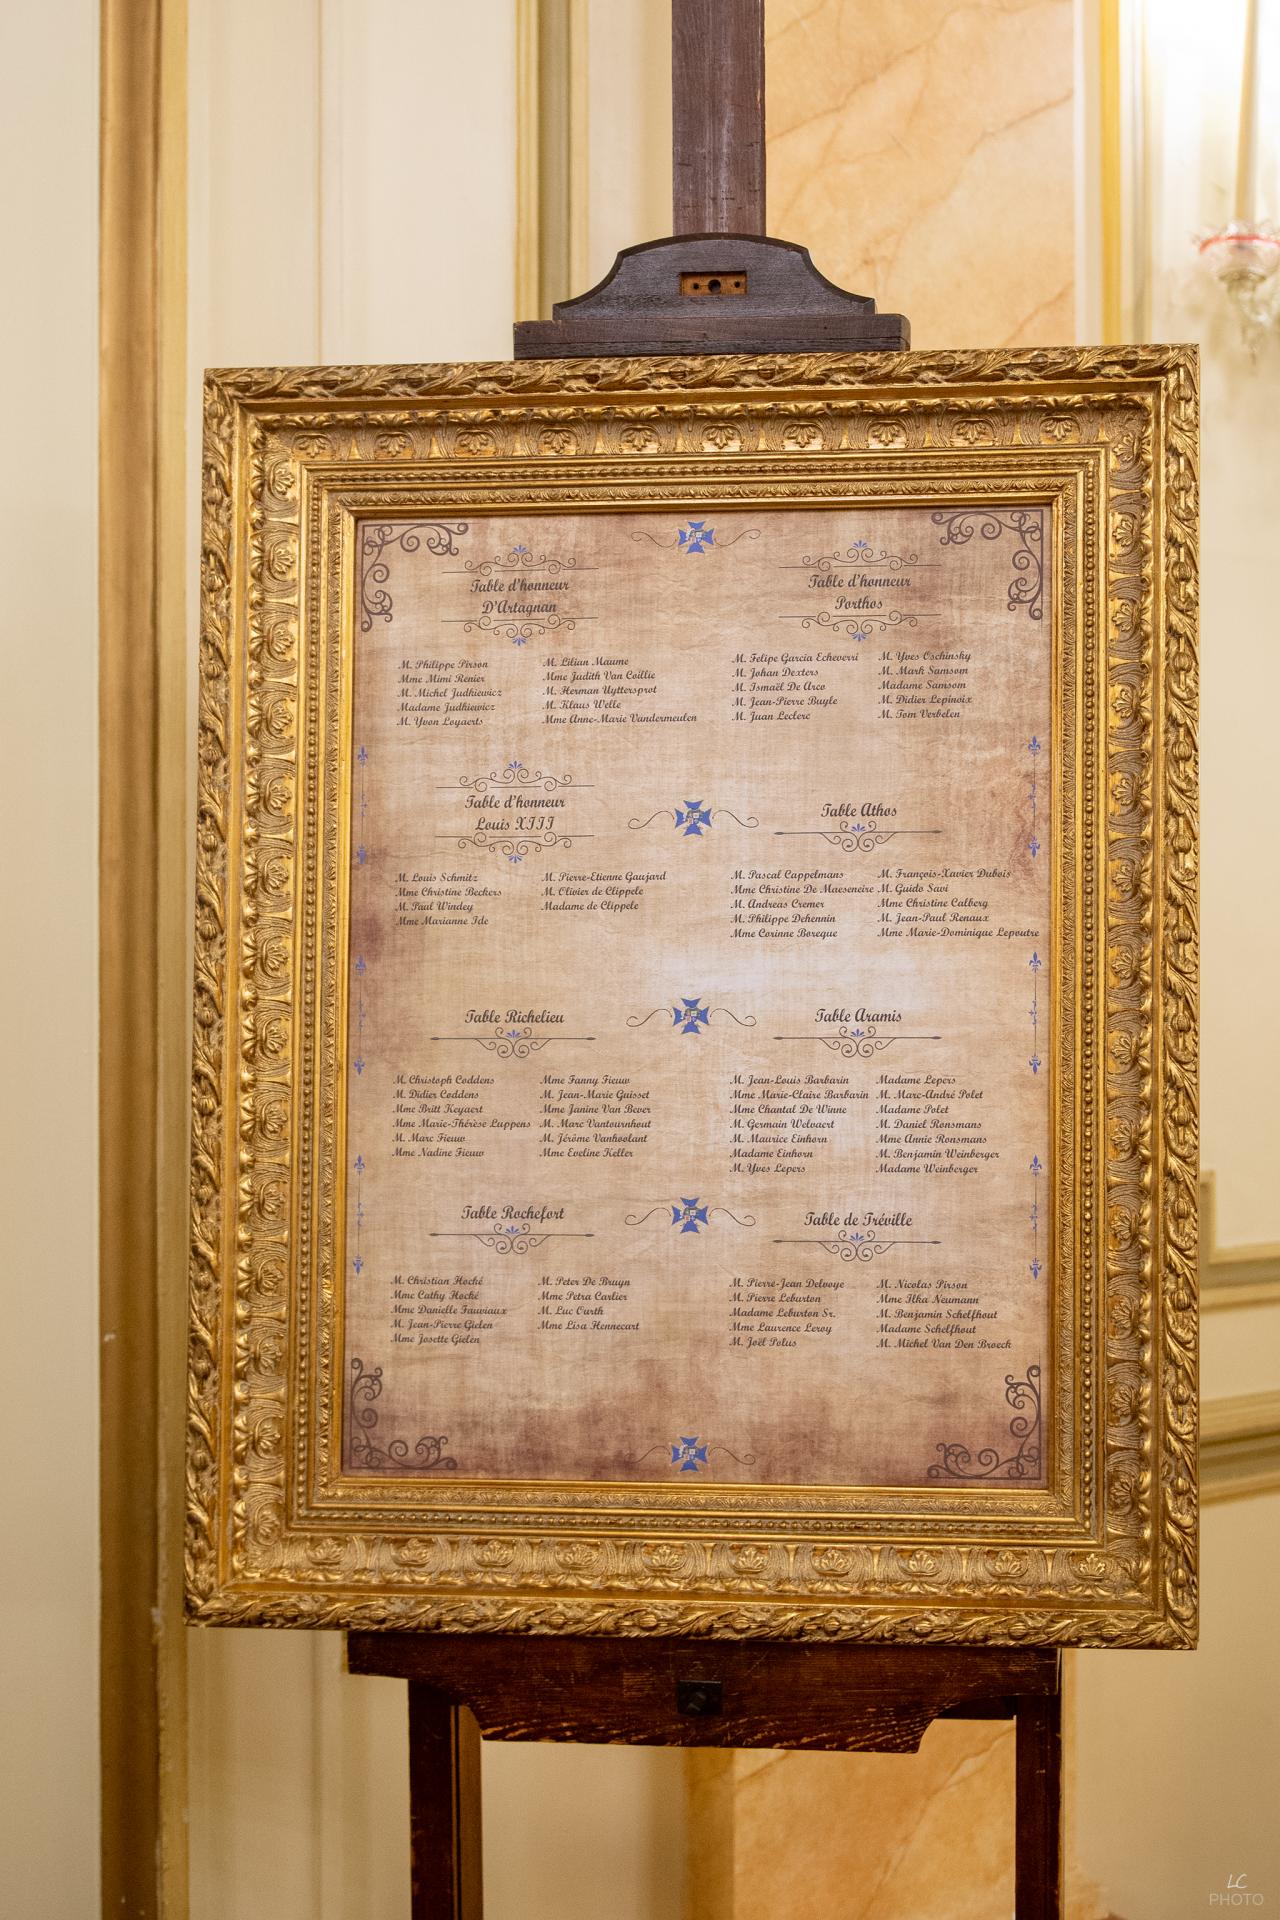 Table d'honneur
D'Artagnan
M. Philippe Pirson
Mme Mimi Renier
M. Michel Judkiewicz
Madame Judkiewicz
M. Yvon Loyaerts
M. Lilian Maume
Mme Judith Van Coillie
M. Herman Uyttersprot
M. Klaus Welle
Mme Anne-Marie Vandermeulen
Table d'honneur
Porthos
M. Felipe Garcia Echeverri
M. Johan Dexters
M. Ismaël De Arco
M. Jean-Pierre Buyle
M. Juan Leclerc
M. Yves Oschinsky
M. Mark Samsom
Madame Samsom
M. Didier Lepinoix
M. Tom Verbelen
Table d'honneur
Louis XIII
M. Louis Schmitz
Mme Christine Beckers
M. Paul Windey
Mme Marianne Ide
M. Pierre-Etienne Gaujard
M. Olivier de Clippele
Madame de Clippele
Table Athos
M. Pascal Cappelmans
Mme Christine De Maeseneire
M. Andreas Cremer
M. Philippe Dehennin
Mme Corinne Boreque
M. François-Xavier Dubois
M. Guido Savi
Mme Christine Calberg
M. Jean-Paul Renaux
Mme Marie-Dominique Lepoutre
Table Richelieu
M. Christoph Coddens
M. Didier Coddens
Mme Britt Keyaert
Mme Marie-Thérèse Luppens
M. Marc Fieuw
Mme Nadine Fieuw
Mme Fanny Fieuw
M. Jean-Marie Guisset
Mme Janine Van Bever
M. Marc Vantournhout
M. Jérôme Vanhoolant
Mme Eveline Keller
Table Aramis
M. Jean-Louis Barbarin
Mme Marie-Claire Barbarin
Mme Chantal De Winne
M. Germain Welvaert
M. Maurice Einhorn
Madame Einhorn
M. Yves Lepers
Madame Lepers
M. Marc-André Polet
Madame Polet
M. Daniel Ronsmans
Mme Annie Ronsmans
M. Benjamin Weinberger
Madame Weinberger
Table Rochefort
M. Christian Hocké
Mme Cathy Hocké
Mme Danielle Fauviaux
M. Jean-Pierre Gielen
Mme Josette Gielen
M. Peter De Bruyn
Mme Petra Carlier
M. Luc Ourth
Mme Lisa Hennecart
Table de Tréville
M. Pierre-Jean Delvoye
M. Pierre Leburton
Madame Leburton Sr.
Mme Laurence Leroy
M. Joël Polus
M. Nicolas Pirson
Mme Ilka Neumann
M. Benjamin Schelfhout
Madame Schelfhout
M. Michel Van Den Broeck
LC
PHOTO